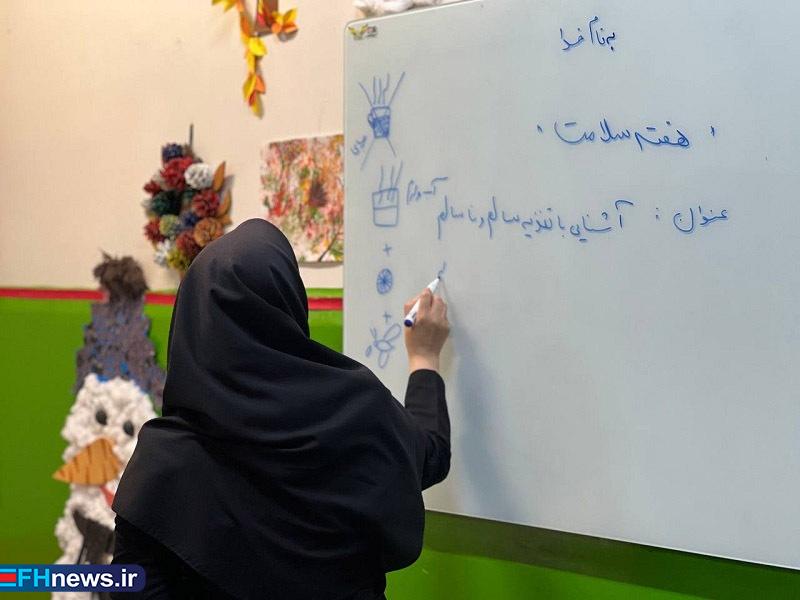 به نام خدا
« هفته سلامت »
عنوان : آشنایی با تغذیه سالم و ناسالم
آب ولرم
+
+
EFHnews.ir